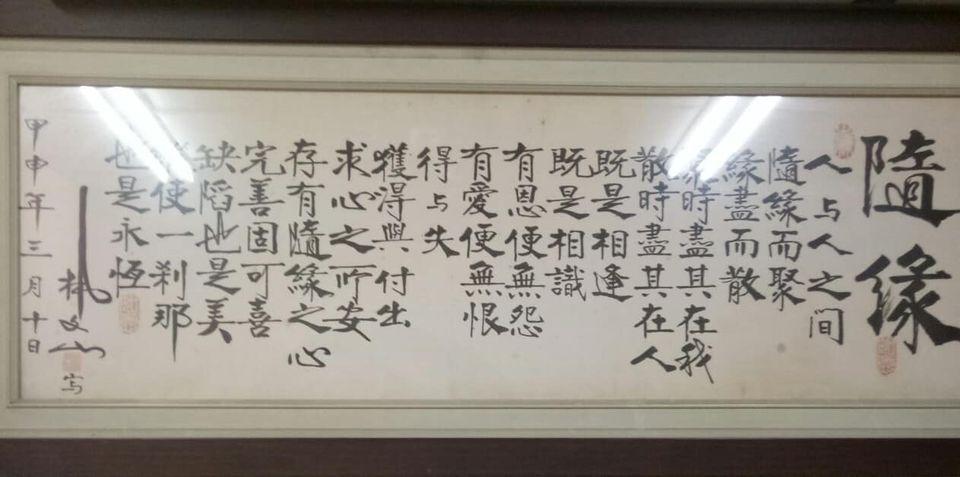 隨緣
人与人之間
隨緣而聚
緣盡而散
時盡其在我
散時盡其在人
既是相逢
既是相識
有恩便無怨
有愛便無恨
得与失
獲得與付出
求心之所安
存有隨緣之心
完善固可喜
缺陷也是美
使一剎那
也是永恆
林文山写
甲申年三月十日